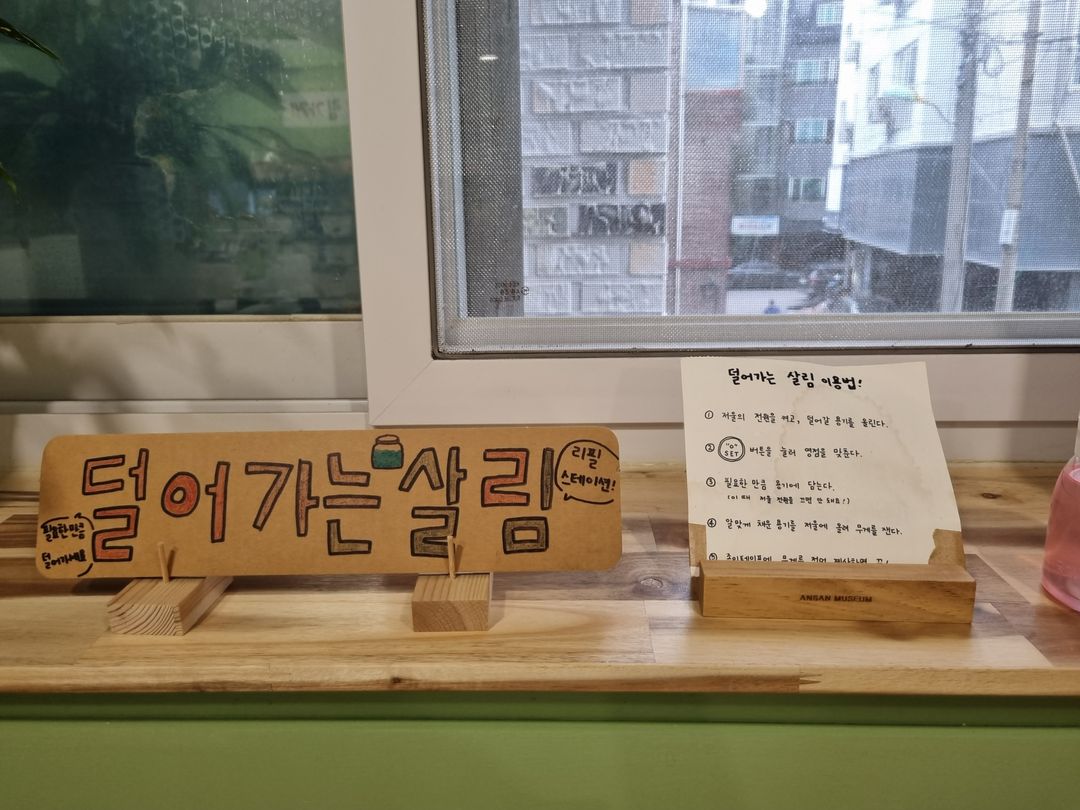 덜어가는 살림
리필
스테이션!
필요한 만큼
덜어가세요
덜어가는 살림 이용법!
① 저울의 전원을 켜고, 덜어갈 용기를 올린다.
② "0" SET 버튼을 눌러 영점을 맞춘다.
③ 필요한 만큼 용기에 담는다.
(이 때 저울 전원을 끄면 안 돼요!)
④ 알맞게 채운 용기를 저울에 올려 무게를 잰다.
⑤ 종이테이프에 무게를 적어 계산하면 끝!
ANSAN MUSEUM